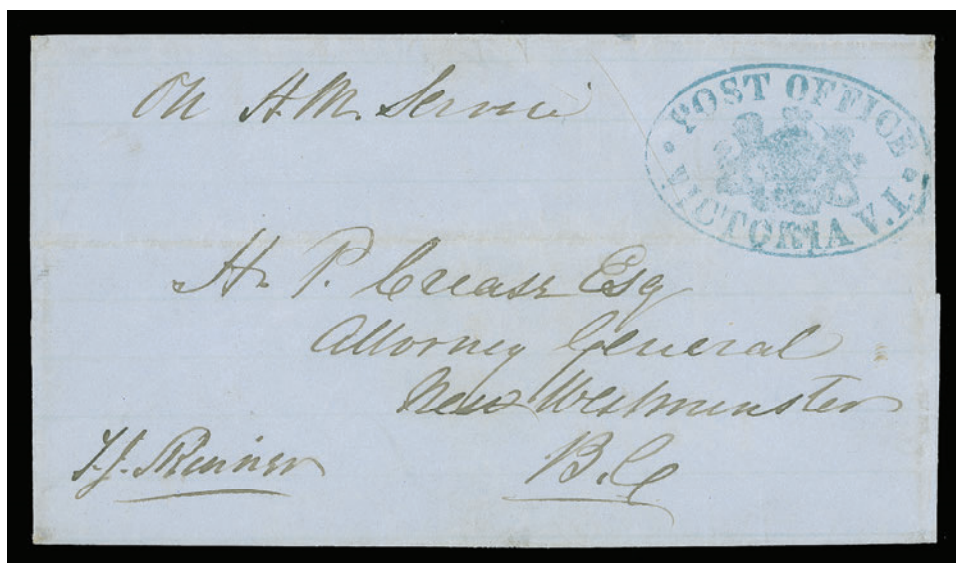 On H.M. Service
POST OFFICE
VICTORIA V.I.
H. P. Crease Esq
Attorney General
New Westminster
B.C
T.J. Skinner